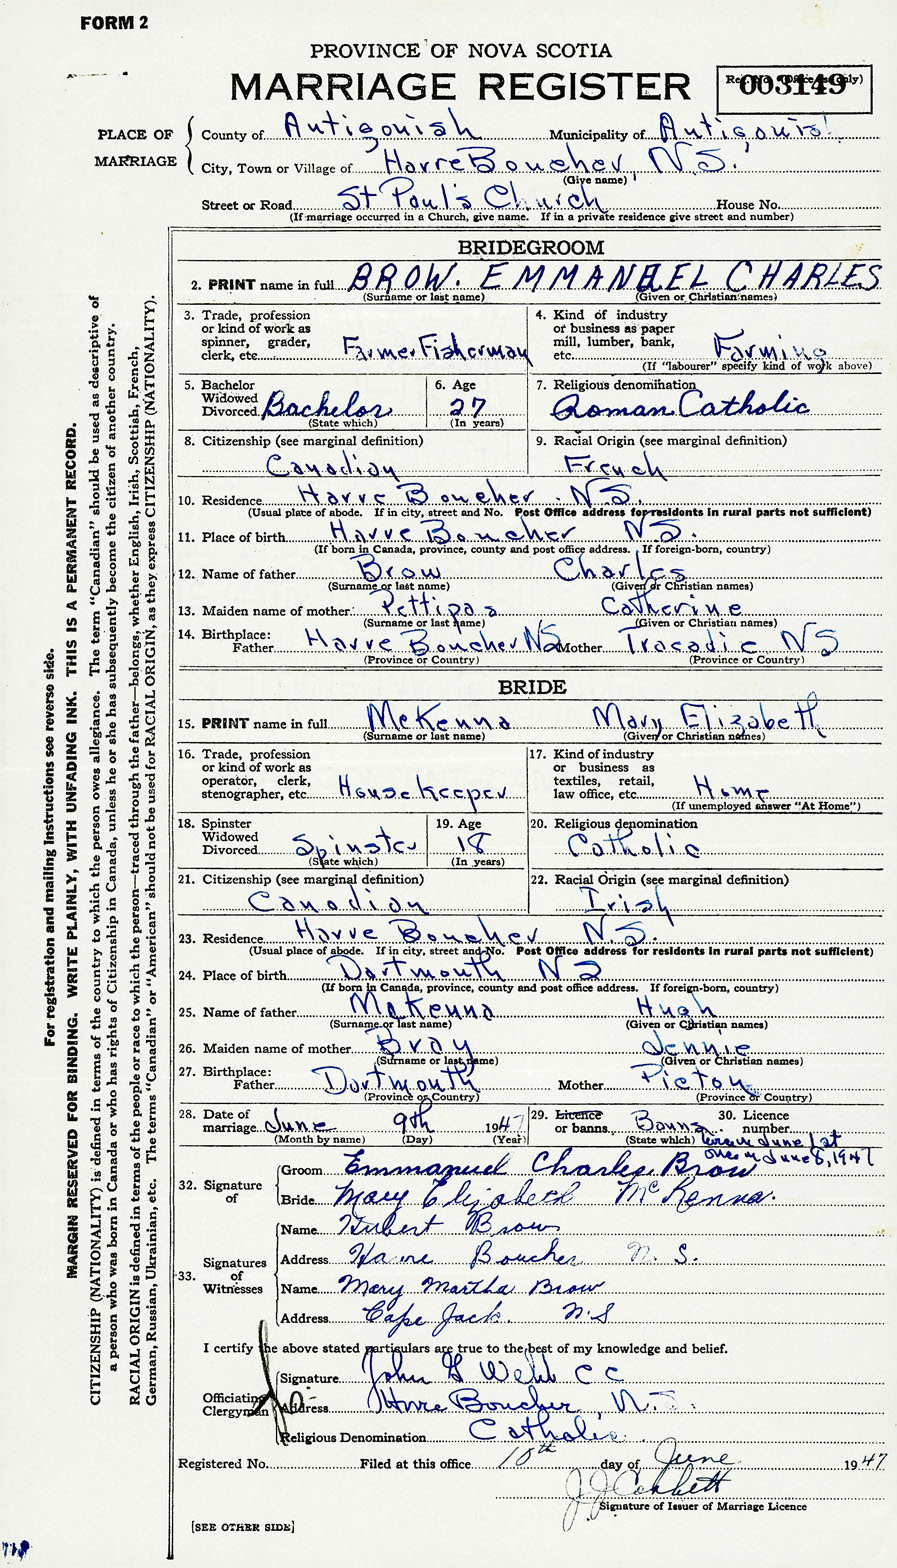 FORM 2
PROVINCE OF NOVA SCOTIA
MARRIAGE REGISTER
Reg. No. (Office use only)
003149
PLACE OF MARRIAGE
County of Antigonish Municipality of Antigonis
City, Town or Village of Havre Boucher N.S.
(Give name)
Street or Road St Paul's Church House No.
(If marriage occurred in a Church, give name. If in a private residence give street and number)
BRIDEGROOM
2. PRINT name in full BROW. EMMANUEL CHARLES
(Surname or last name) (Given or Christian names)
3. Trade, profession or kind of work as spinner, grader, clerk, etc. Farmer Fisherman
4. Kind of industry or business as paper mill, lumber, bank, etc. Farming
(If "labourer" specify kind of work above)
5. Bachelor Widowed Divorced Bachelor
(State which)
6. Age 27
(In years)
7. Religious denomination Roman Catholic
8. Citizenship (see marginal definition) Canadian
9. Racial Origin (see marginal definition) French
10. Residence Havre Boucher. N.S.
(Usual place of abode. If in city, street and No. Post Office address for residents in rural parts not sufficient)
11. Place of birth Havre Boucher N.S.
(If born in Canada, province, county and post office address. If foreign-born, country)
12. Name of father Brow Charles
(Surname or last name) (Given or Christian names)
13. Maiden name of mother Pettipas Catherine
(Surname or last name) (Given or Christian names)
14. Birthplace: Father Havre Boucher NS Mother Tracadie NS
(Province or Country) (Province or Country)
BRIDE
15. PRINT name in full McKenna Mary Elizabeth
(Surname or last name) (Given or Christian names)
16. Trade, profession or kind of work as operator, clerk, stenographer, etc. Housekeeper
17. Kind of industry or business as textiles, retail, law office, etc. Home
(If unemployed answer "At Home")
18. Spinster Widowed Divorced Spinster
(State which)
19. Age 18
(In years)
20. Religious denomination Catholic
21. Citizenship (see marginal definition) Canadian
22. Racial Origin (see marginal definition) Irish
23. Residence Havre Boucher N.S.
(Usual place of abode. If in city, street and No. Post Office address for residents in rural parts not sufficient)
24. Place of birth Dartmouth NS
(If born in Canada, province, county and post office address. If foreign-born, country)
25. Name of father McKenna Hugh
(Surname or last name) (Given or Christian names)
26. Maiden name of mother Bray Jennie
(Surname or last name) (Given or Christian names)
27. Birthplace: Father Dartmouth Mother Picton
(Province or Country) (Province or Country)
28. Date of marriage June 9th 1947
(Month by name) (Day) (Year)
29. Licence or banns Banns
(State which)
30. Licence number
June 1st
June 8, 1947
32. Signature of
Groom Emmanuel Charles Brow
Bride Mary Elizabeth McKenna.
33. Signatures of Witnesses
Name Hubert Brow
Address Havre Boucher N. S.
Name Mary Martha Brow
Address Cape Jack. N.S
I certify the above stated particulars are true to the best of my knowledge and belief.
Officiating Clergyman
Signature John G Webb CC
Address Havre Boucher, N.S.
Religious Denomination Catholic
Registered No. Filed at this office 10th day of June 1947
J.J. Corbett
Signature of Issuer of Marriage Licence
[SEE OTHER SIDE]
For registration and mailing instructions see reverse side.
MARGIN RESERVED FOR BINDING. WRITE PLAINLY, WITH UNFADING INK. THIS IS A PERMANENT RECORD.
CITIZENSHIP (NATIONALITY) is defined in terms of the country to which the person owes allegiance. The term "Canadian" should be used as descriptive of
a person who was born in Canada or who has rights of Citizenship in Canada, unless he or she has subsequently become the citizen of another country.
RACIAL ORIGIN is defined in terms of the people or race to which the person—traced through the father—belongs, whether English, Irish, Scottish, French,
German, Russian, Ukrainian, etc. The terms "Canadian" or "American" should not be used for RACIAL ORIGIN, as they express CITIZENSHIP (NATIONALITY).